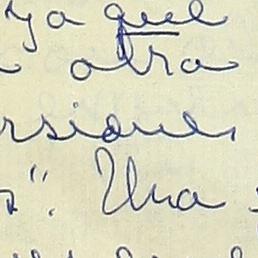 ya que
otra
rsiones
". Una